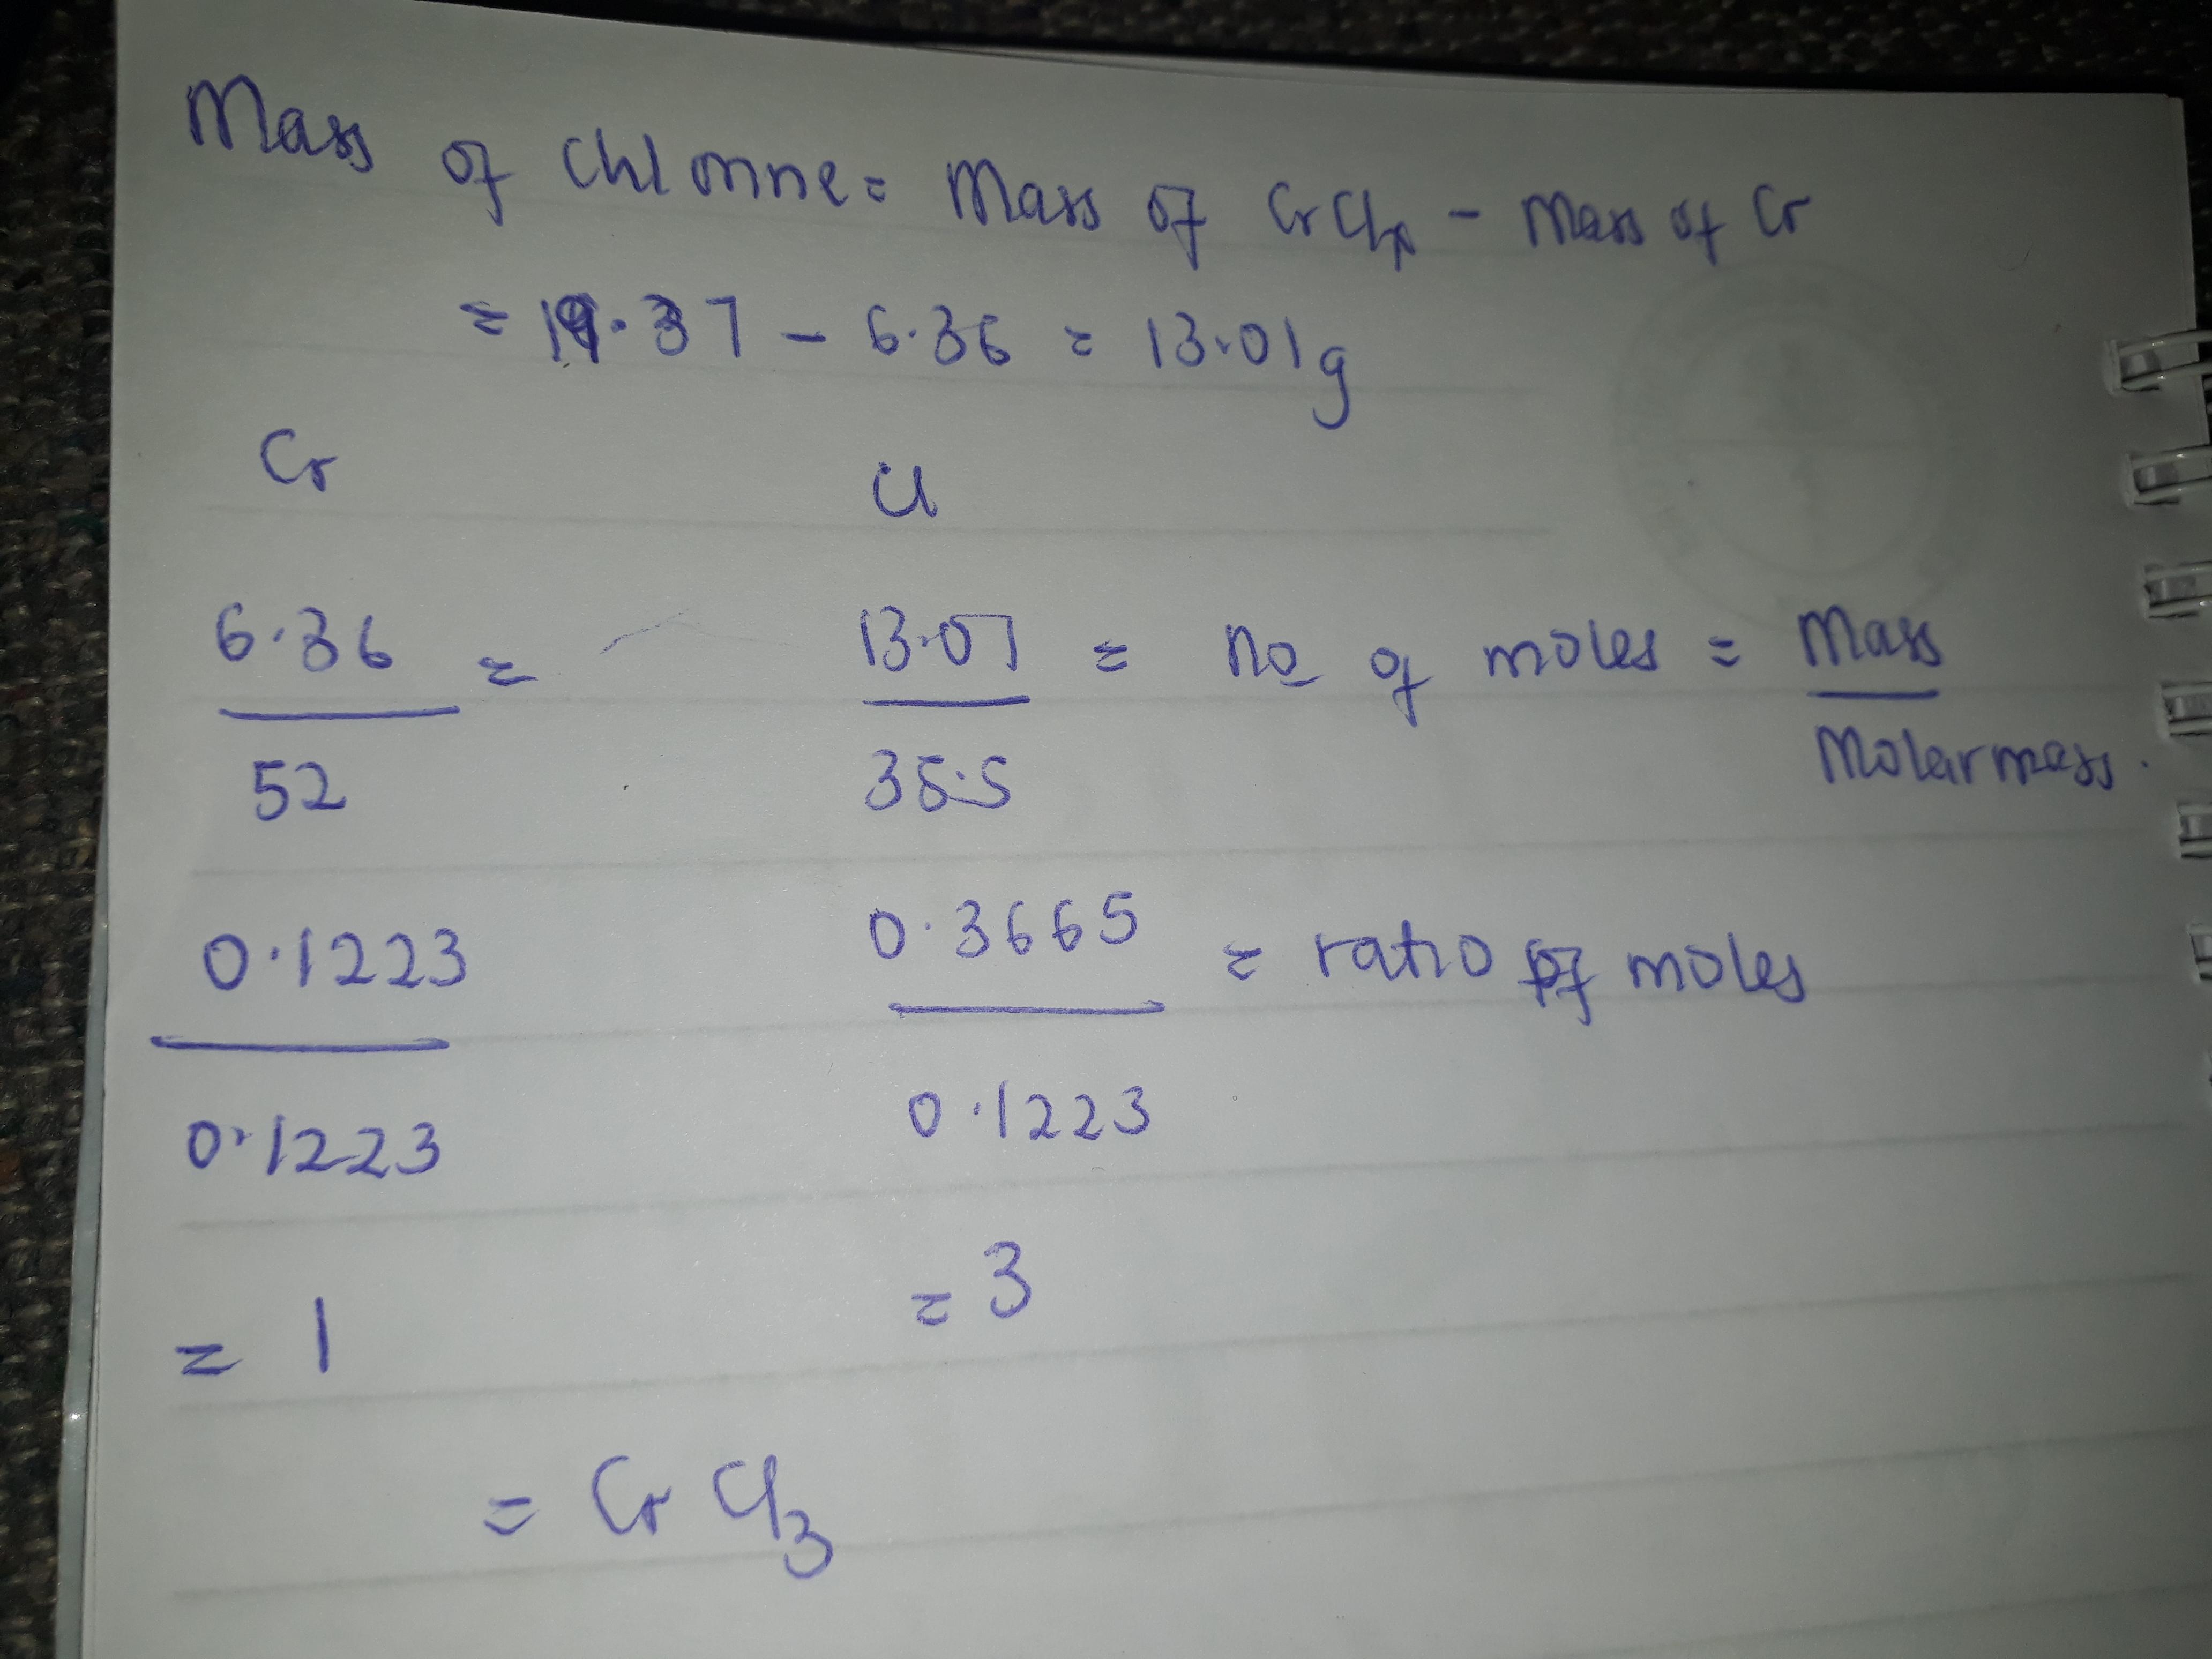 Mass of Chlorine = Mass of CrClx - Mass of Cr
= 19.37 - 6.36 = 13.01g
Cr Cl
6.36 = 13.01 = no of moles = Mass
52 35.5 Molar mass.
0.1223 0.3665 = ratio of moles
0.1223 0.1223
= 1 = 3
= CrCl3